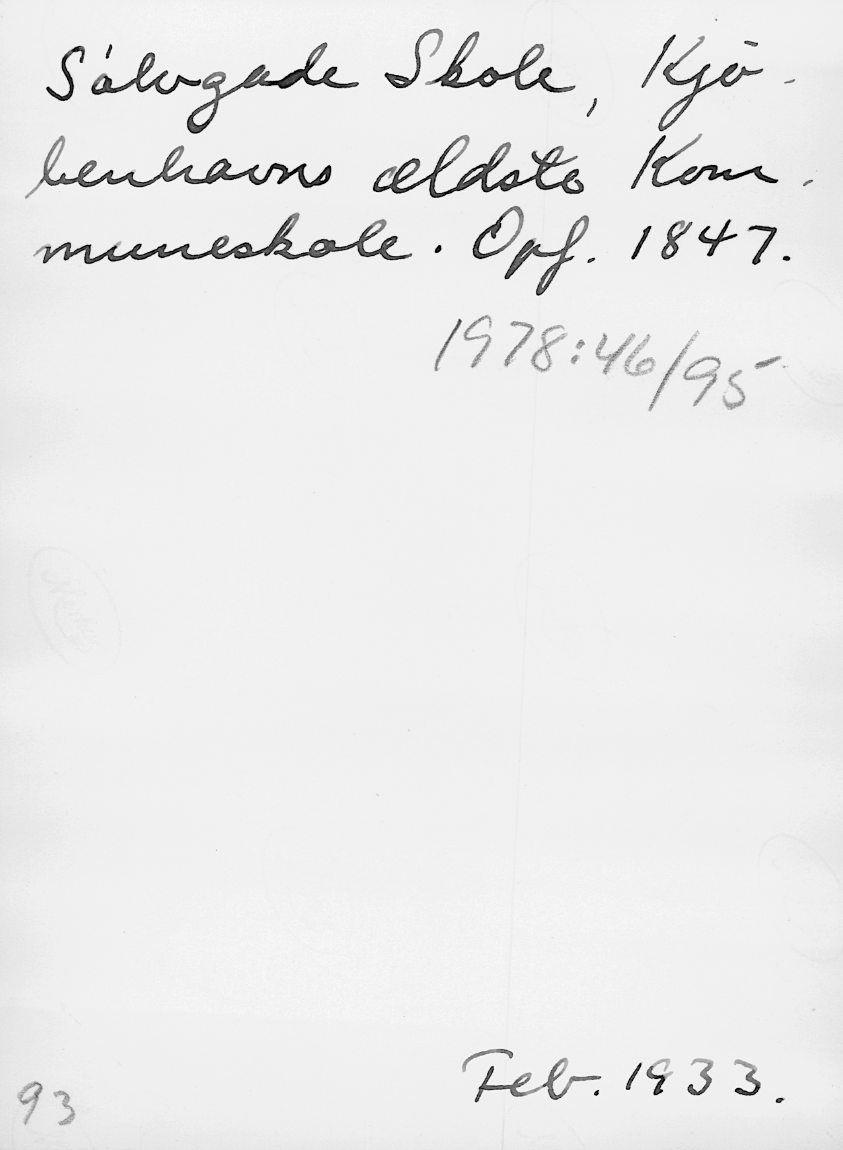 Sólvgade Skole, Kjö-
benhavns ældste Kom-
muneskole. Opf. 1847.
1978:46/95
Feb. 1933.
93